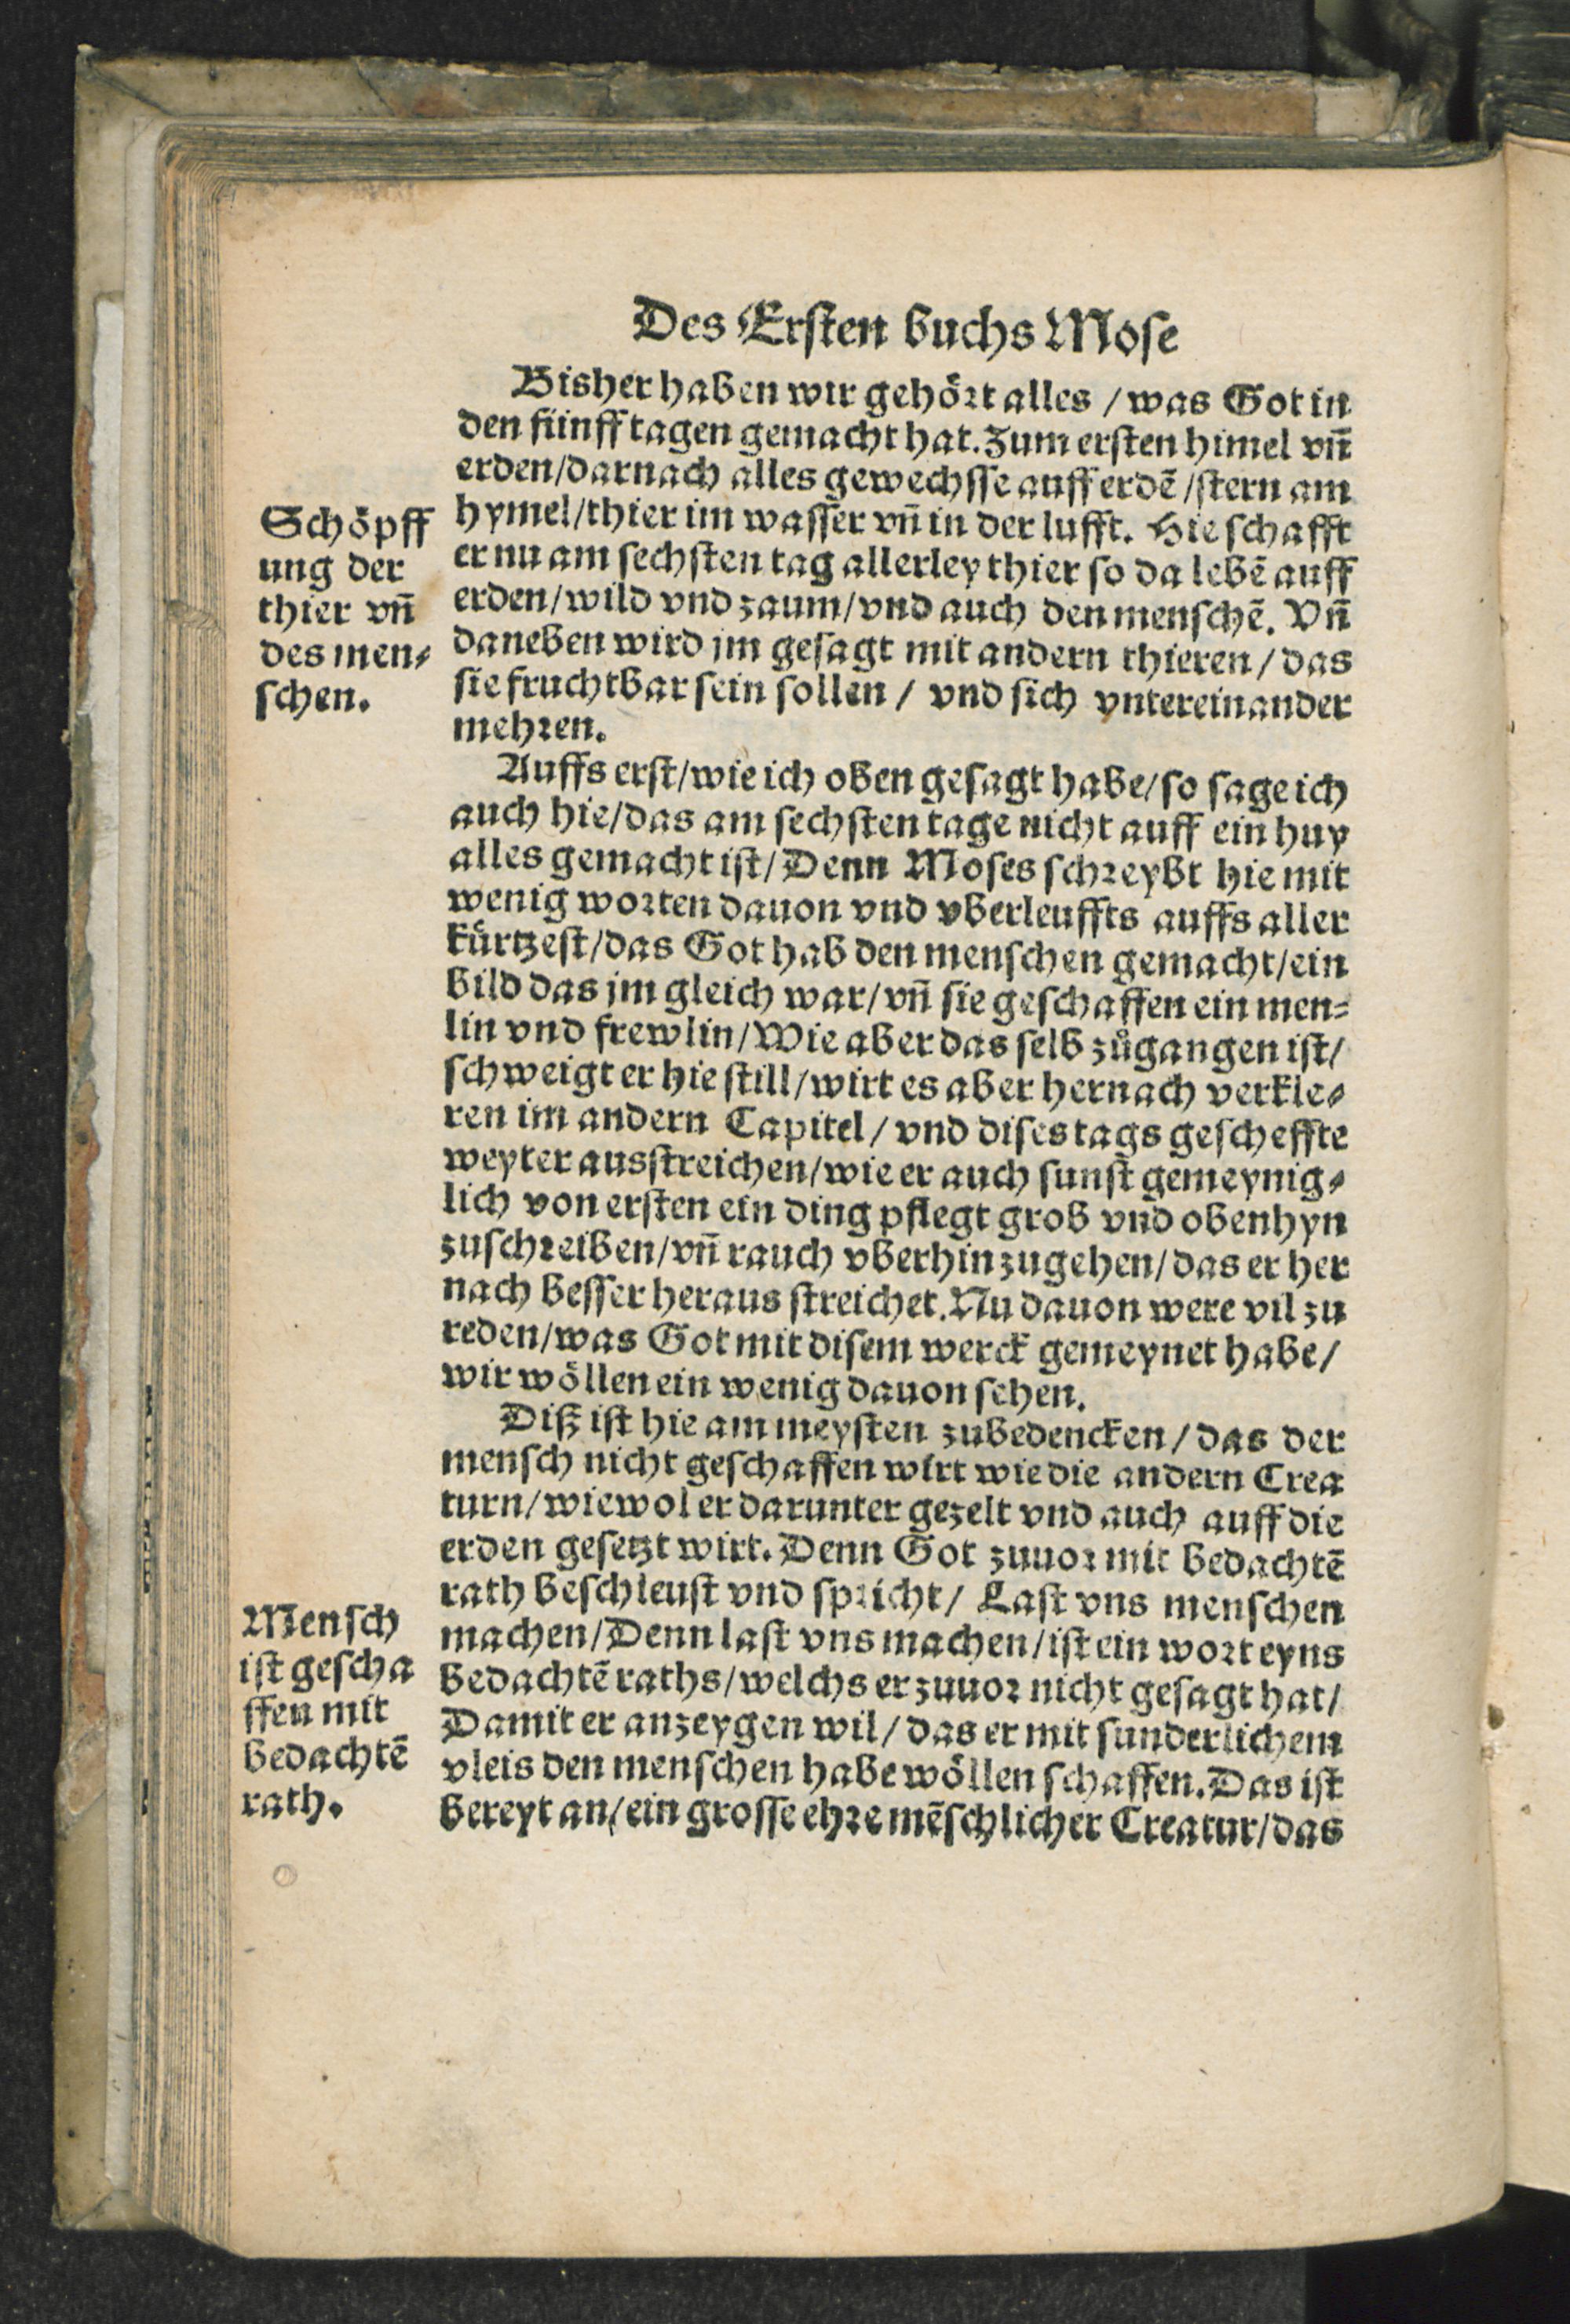 Des Ersten buchs Mose
Bisher haben wir gehört alles / was Got in
den fünff tagen gemacht hat. Zum ersten himel vñ
erden/darnach alles gewechsse auff erdē/stern am
hymel/thier im wasser vñ in der lufft. Hie schafft
er nu am sechsten tag allerley thier so da lebē auff
erden/wild vnd zaum/vnd auch den menschē. Vñ
daneben wird jm gesagt mit andern thieren/das
sie fruchtbar sein sollen / vnd sich vntereinander
mehren.
Schöpff
ung der
thier vñ
des men⸗
schen.
Auffs erst/wie ich oben gesagt habe/so sage ich
auch hie/das am sechsten tage nicht auff ein huy
alles gemacht ist/Denn Moses schreybt hie mit
wenig worten dauon vnd vberleuffts auffs aller
kürtzest/das Got hab den menschen gemacht/ein
bild das jm gleich war/vñ sie geschaffen ein men⸗
lin vnd frewlin/Wie aber das selb zůgangen ist/
schweigt er hie still/wirt es aber hernach verkle⸗
ren im andern Capitel/vnd dises tags gescheffte
weyter ausstreichen/wie er auch sunst gemeynig⸗
lich von ersten ein ding pflegt grob vnd obenhyn
zuschreiben/vñ rauch vberhin zugehen/das er her
nach besser heraus streichet. Nu dauon were vil zu
reden/was Got mit disem werck gemeynet habe/
wir wöllen ein wenig dauon sehen.
Diß ist hie am meysten zubedencken/das der
mensch nicht geschaffen wirt wie die andern Crea
turn/wiewol er darunter gezelt vnd auch auff die
erden gesetzt wirt. Denn Got zuuor mit bedachtē
rath beschleust vnd spricht/ Last vns menschen
machen/Denn last vns machen/ist ein wort eyns
bedachtē raths/welchs er zuuor nicht gesagt hat/
Damit er anzeygen wil/das er mit sunderlichem
vleis den menschen habe wöllen schaffen. Das ist
bereyt an/ein grosse ehre mēschlicher Creatur/das
Mensch
ist gescha
ffen mit
bedachtē
rath.